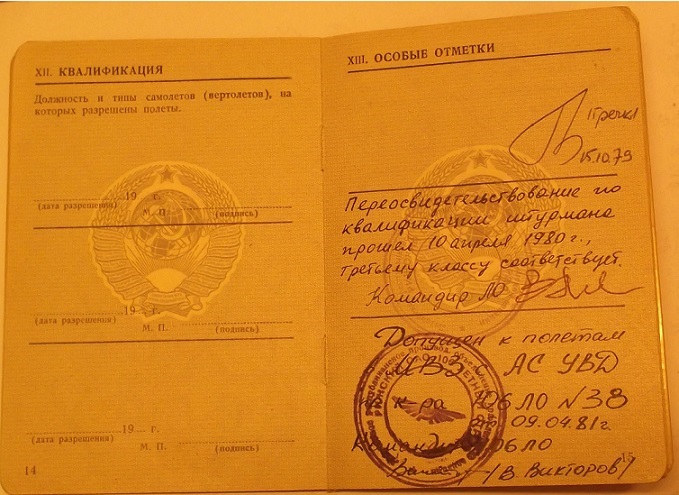 XII. КВАЛИФИКАЦИЯ
Должность и типы самолетов (вертолетов), на
которых разрешены полеты.
19 г.
(дата разрешения)
М. П.
(подпись)
19 г.
(дата разрешения)
М. П.
(подпись)
19 г.
(дата разрешения)
М. П.
(подпись)
14
XIII. ОСОБЫЕ ОТМЕТКИ
15.10.79
Переосвидетельствование по
квалификации штурмана
прошел 10 апреля 1980 г.,
третьему классу соответствует.
Командир ЛО
Допущен к полетам
АС УВД
ЮБЛО N 38
09.04.81г.
ЮБЛО
(В. Викторов)
15